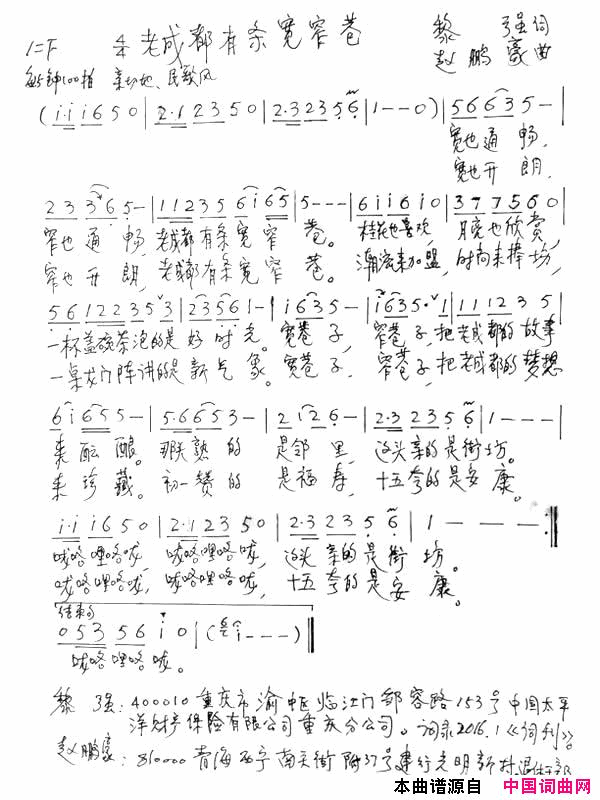 老成都有条宽窄巷
黎 强词
1=F 4/4
赵 鹏豪曲
每分钟100拍 亲切地、民歌风
(i·i i650|2·12350|2·32356|1--0)|56635-|
宽也通畅,
宽也开朗,
23365-|11235 6i65|5---|6ii6i0|377560|
窄也通畅,老成都有条宽窄巷。桂花也喜欢,月亮也欣赏,
窄也开朗,老成都有条宽窄巷。潮流来加盟,时尚来捧场,
5612235 3|23561-|i635-|i635·1|111235|
一杯盖碗茶泡的是好时光。宽巷子,窄巷子,把老成都的故事
一桌龙门阵讲的是新气象。宽巷子,窄巷子,把老成都的梦想
6i655-|5·6653-|2i26-|2·32356|1---|
来酝酿。那头熟的是邻里,这头亲的是街坊。
来珍藏。初一赞的是福寿,十五夸的是安康。
i·i i650|2·12350|2·32356|1---:|
咙咯哩咯咙,咙咯哩咯咙,这头亲的是街坊。
咙咯哩咯咙,咙咯哩咯咙,十五夸的是安康。
结束句
05356i0|(i---)||
咙咯哩咯咙。
黎 强:400010重庆市渝中区临江门邹容路153号中国太平
洋财产保险有限公司重庆分公司。词录2016.1《词刊》
赵鹏豪:810000青海西宁南大街附37号建行光明新村退休干部
本曲谱源自 中国词曲网